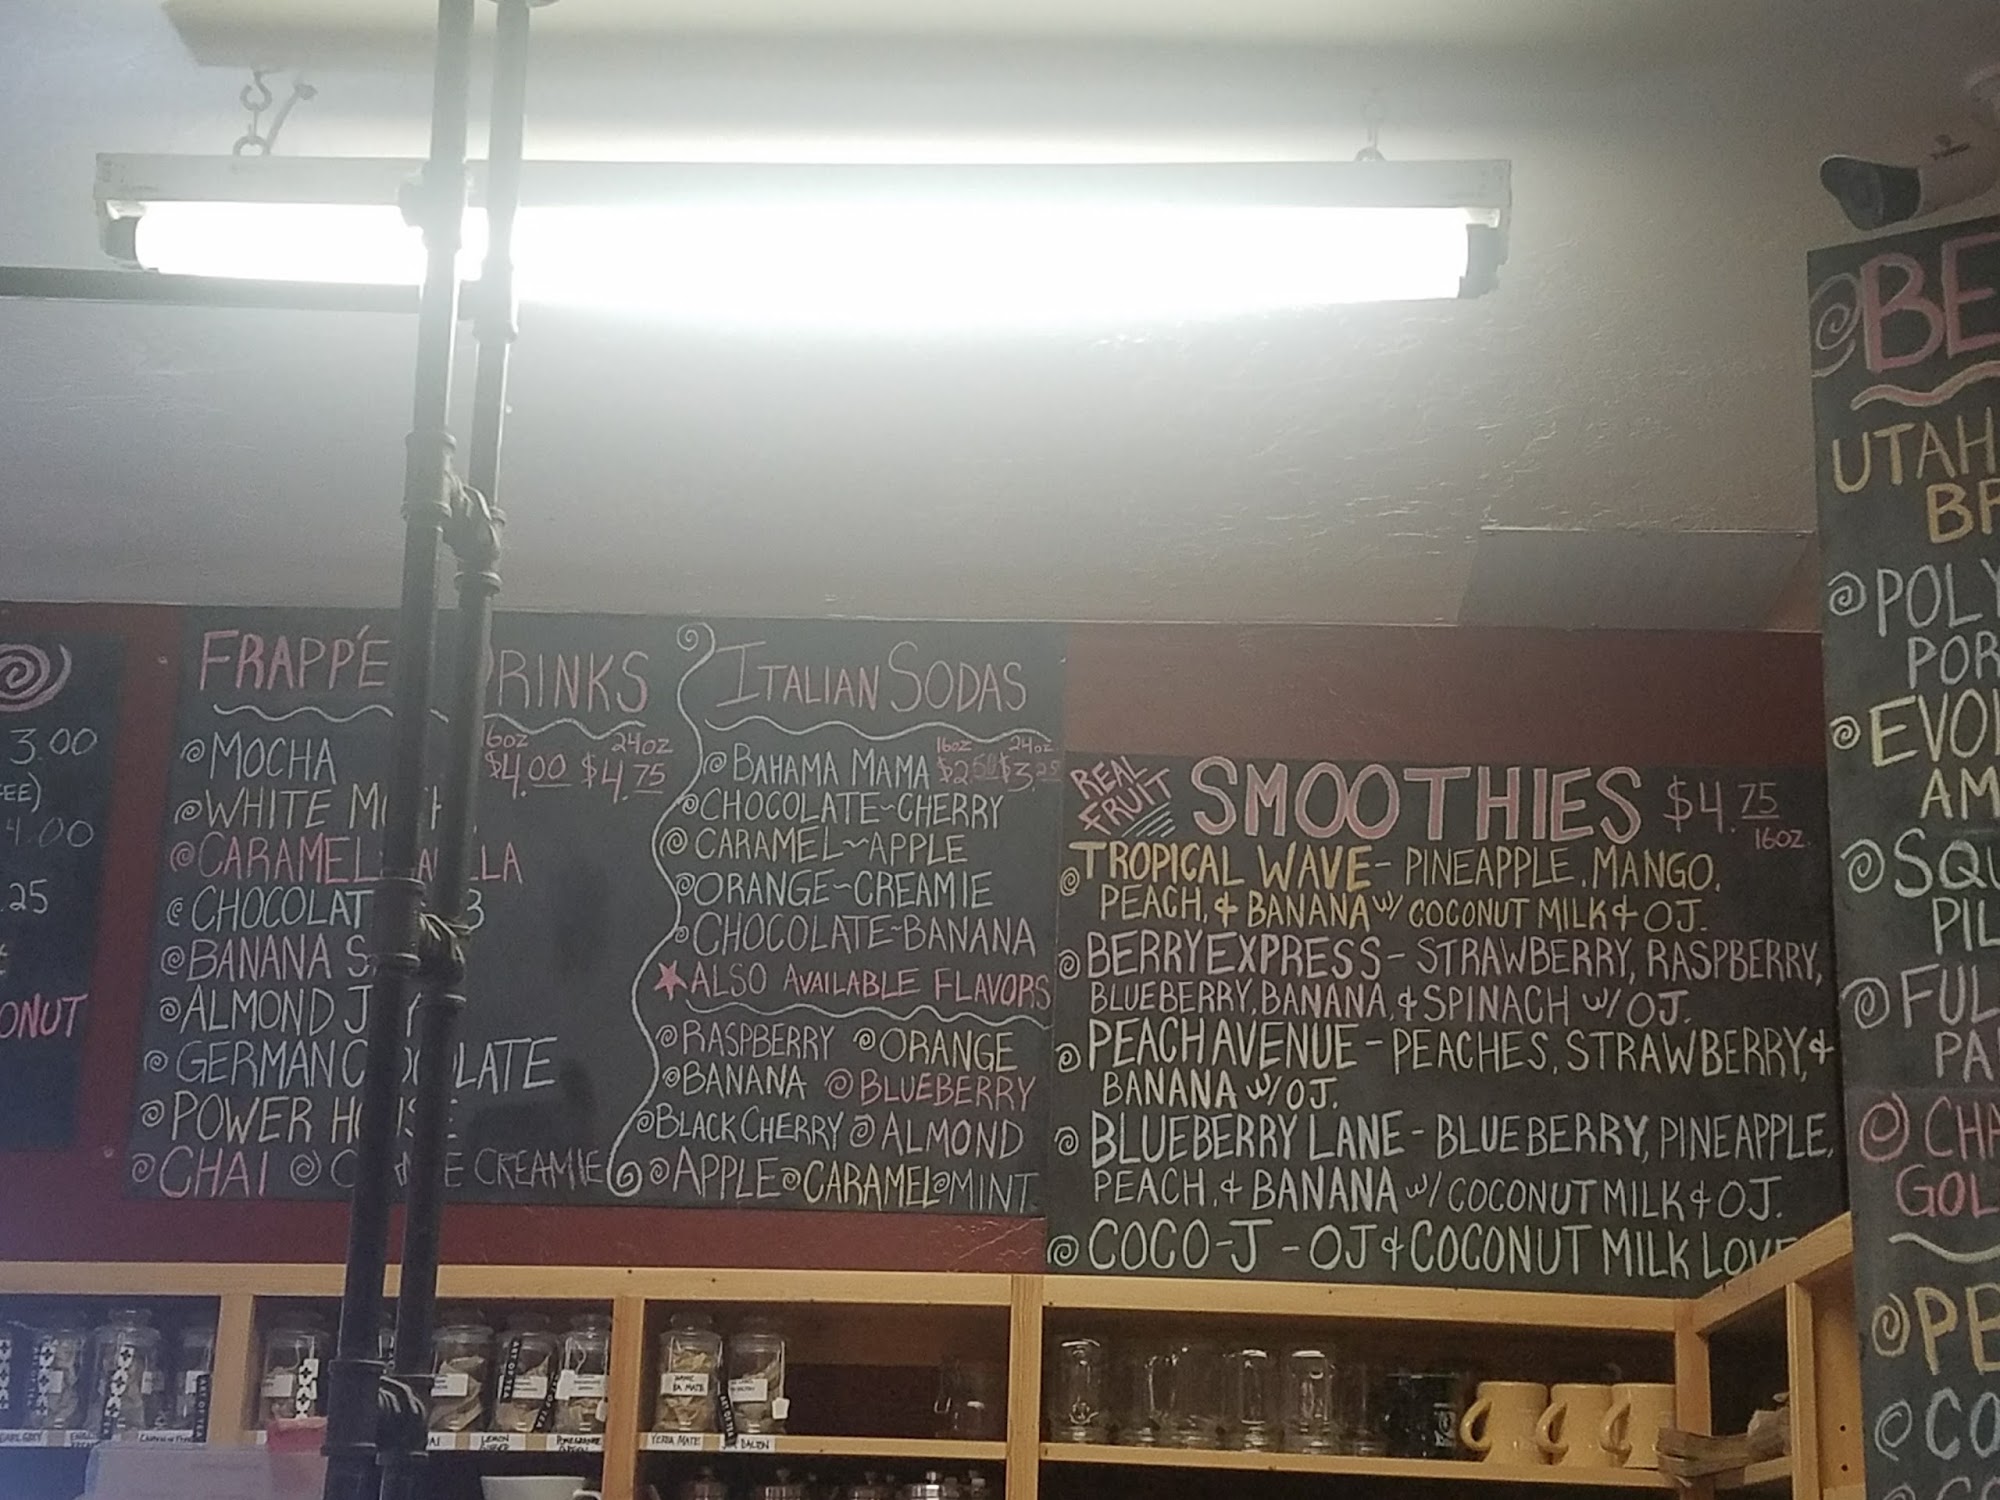 3.00
4.00
.25
ONUT
FRAPP'E RINKS
16oz 24oz
MOCHA $4.00 $4.75
WHITE
CARAMEL
CHOCOLAT
BANANA
ALMOND
GERMAN
POWER
CHAI CREAMIE
ITALIAN SODAS
16oz 24oz
BAHAMA MAMA $2.50 $3.25
CHOCOLATE~CHERRY
CARAMEL~APPLE
ORANGE~CREAMIE
CHOCOLATE~BANANA
ALSO AVAILABLE FLAVORS
RASPBERRY ORANGE
BANANA BLUEBERRY
BLACK CHERRY ALMOND
APPLE CARAMEL MINT
REAL FRUIT SMOOTHIES $4.75
16OZ.
TROPICAL WAVE - PINEAPPLE, MANGO,
PEACH, & BANANA w/ COCONUT MILK & OJ.
BERRY EXPRESS - STRAWBERRY, RASPBERRY,
BLUEBERRY, BANANA, & SPINACH w/ OJ.
PEACH AVENUE - PEACHES, STRAWBERRY, &
BANANA w/ OJ.
BLUEBERRY LANE - BLUEBERRY, PINEAPPLE,
PEACH, & BANANA w/ COCONUT MILK & OJ.
COCO-J - OJ & COCONUT MILK LOVE
BE
UTAH
BR
POLY
POR
EVOL
AM
SQU
PIL
FUL
PA
CHA
GOL
PE
CO
YERBA MATE